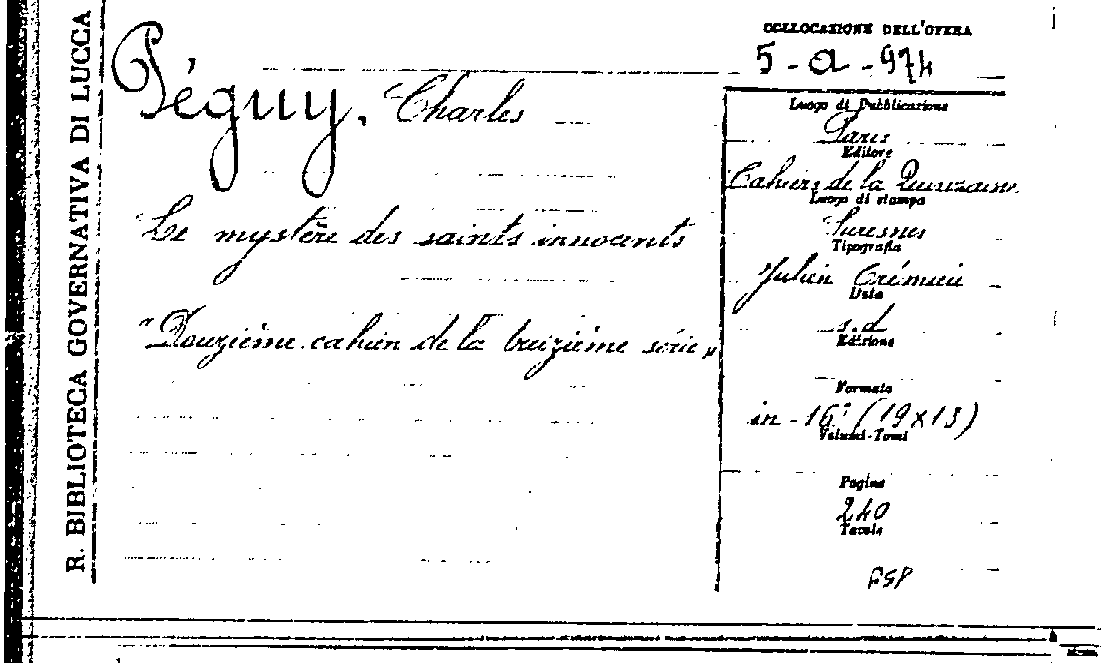 R. BIBLIOTECA GOVERNATIVA DI LUCCA
Péguy, Charles
Le mystère des saints innocents
"Douzième cahier de la treizième série"
COLLOCAZIONE DELL'OPERA
5-a-974
Luogo di Pubblicazione
Paris
Editore
Cahiers de la Quinzaine
Luogo di stampa
Suresnes
Tipografia
Julien Crémieu
Data
s.d
Edizione
Formato
in-16° (19x13)
Volumi-Tomi
Pagine
240
Tavole